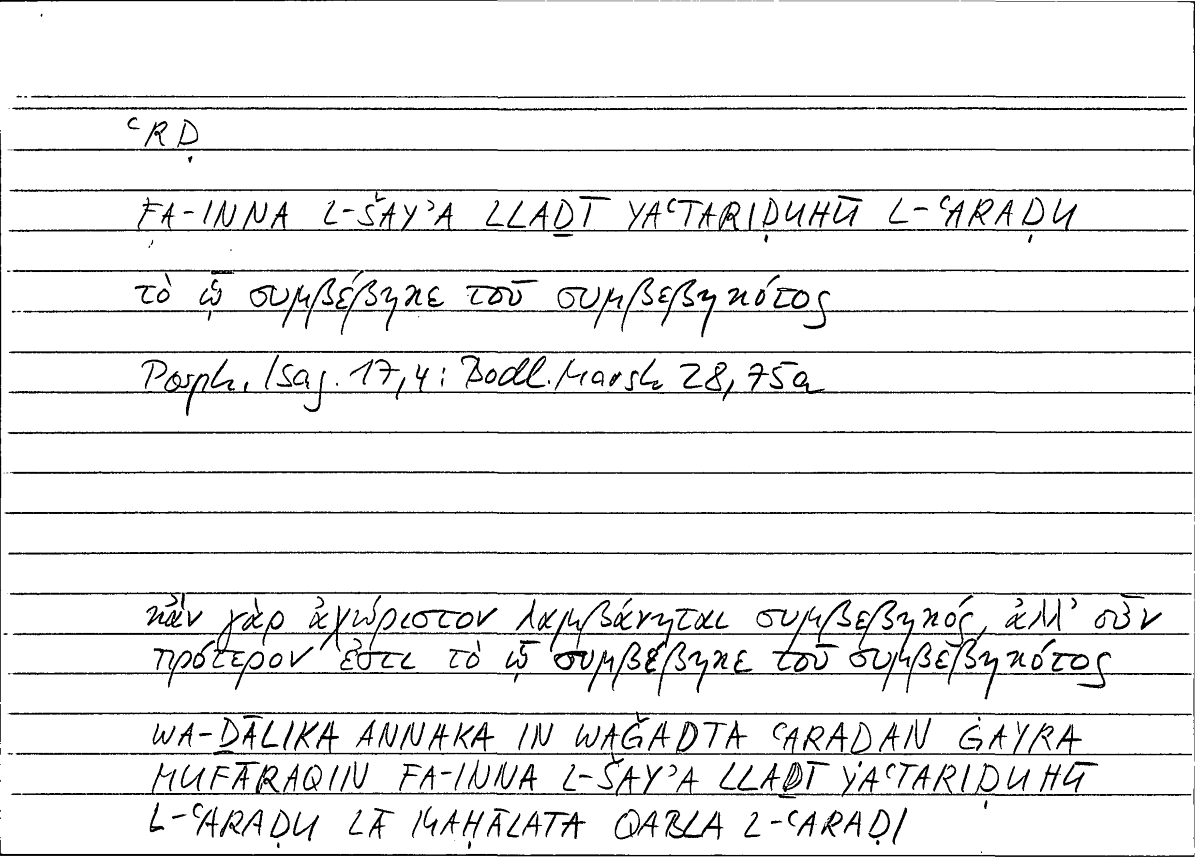 ʿRḌ
FA-INNA L-ŠAYʾA LLAḎĪ YAʿTARIḌUHŪ L-ʿARAḌU
τὸ ᾧ συμβέβηκε τοῦ συμβεβηκότος
Porph. Isag. 17,4: Bodl. Marsh 28,75a
κἂν γὰρ ἀχώριστον λαμβάνηται συμβεβηκός, ἀλλ’ οὖν
πρότερόν ἐστι τὸ ᾧ συμβέβηκε τοῦ συμβεβηκότος
WA-ḎĀLIKA ANNAKA IN WAǦADTA ʿARADAN ĠAYRA
MUFĀRAQIIN FA-INNA L-ŠAYʾA LLAḎĪ YAʿTARIḌUHŪ
L-ʿARAḌU LĀ MAḤĀLATA QABLA L-ʿARAḌI